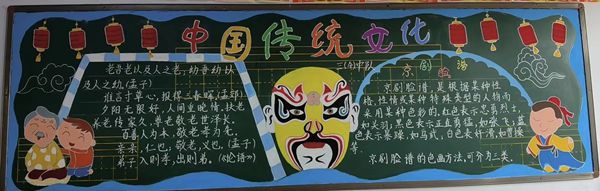 中国传统文化
三(4)中队
老吾老以及人之老,幼吾幼以
及人之幼。(孟子)
谁言寸草心,报得三春晖。(孟郊)
夕阳无限好,人间重晚情,扶老
养老传家久,尊老敬老世泽长。
百善人为本,敬老孝为先。
亲亲,仁也,敬老,义也。(孟子)
弟子入则孝,出则弟。(《论语》)
京剧脸谱
京剧脸谱,是根据某种性
格,性情或某种特殊类型的人物而
采用某种色彩的,红色表示忠勇烈士,
如关羽;黑色表示正直勇猛,如张飞;蓝
色表示豪爽,如马武,白色表奸滑,如曹操
等。
京剧脸谱的色画方法,可分为三类。